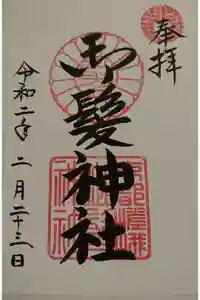 奉拝
御髪神社
令和二年二月二十三日